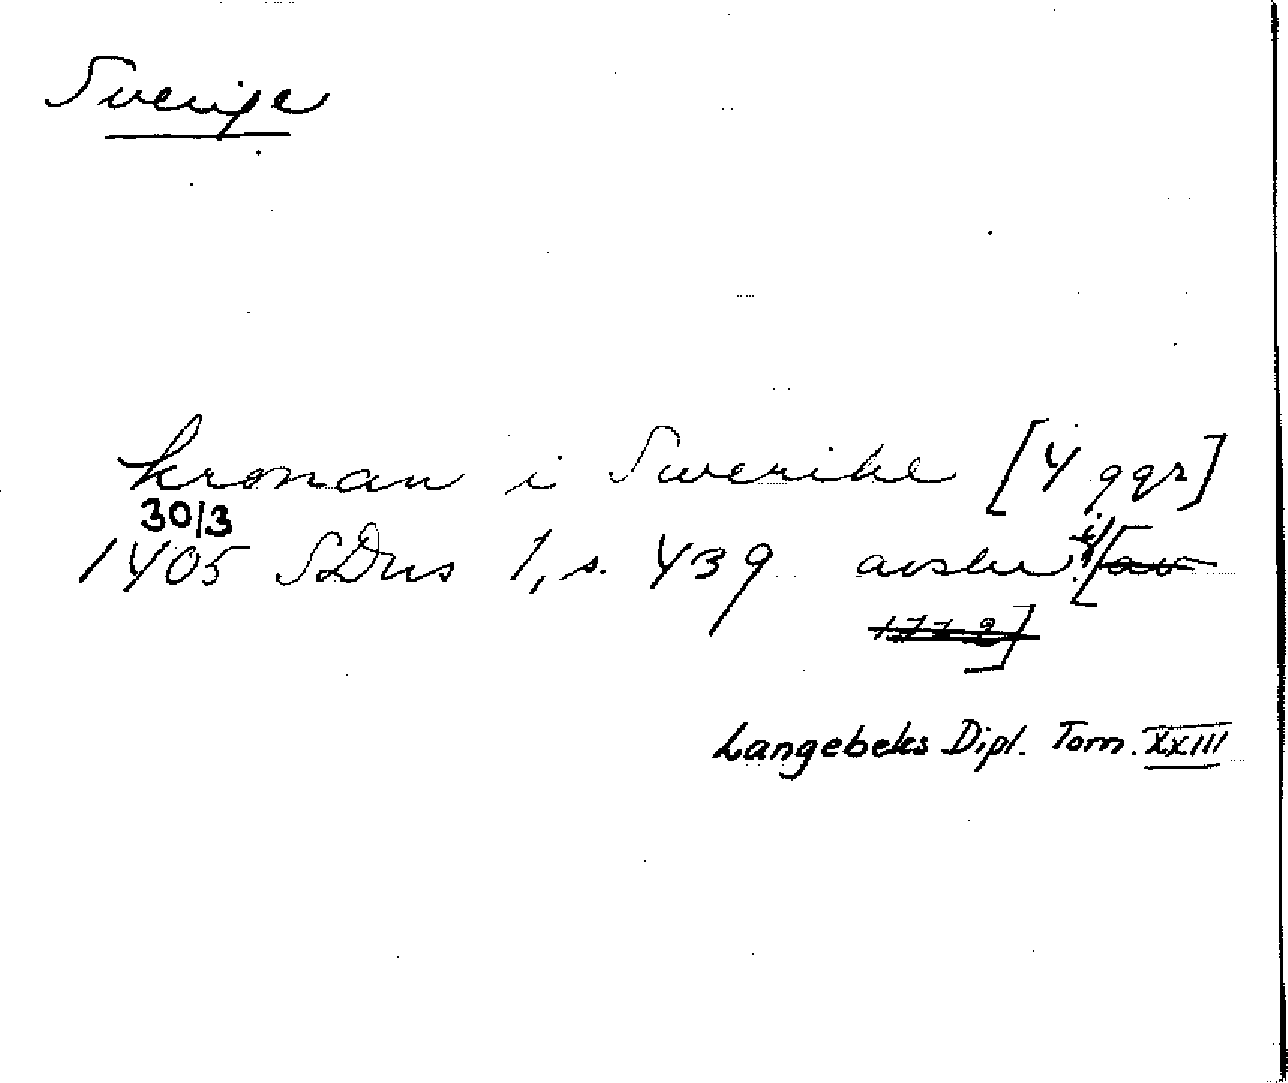 Sverige
kronan i Swerike [4 ggr]
30/3
1405 SDns 1, s. 439 avskr i [av
1779]
Langebeks Dipl. Tom. XXIII